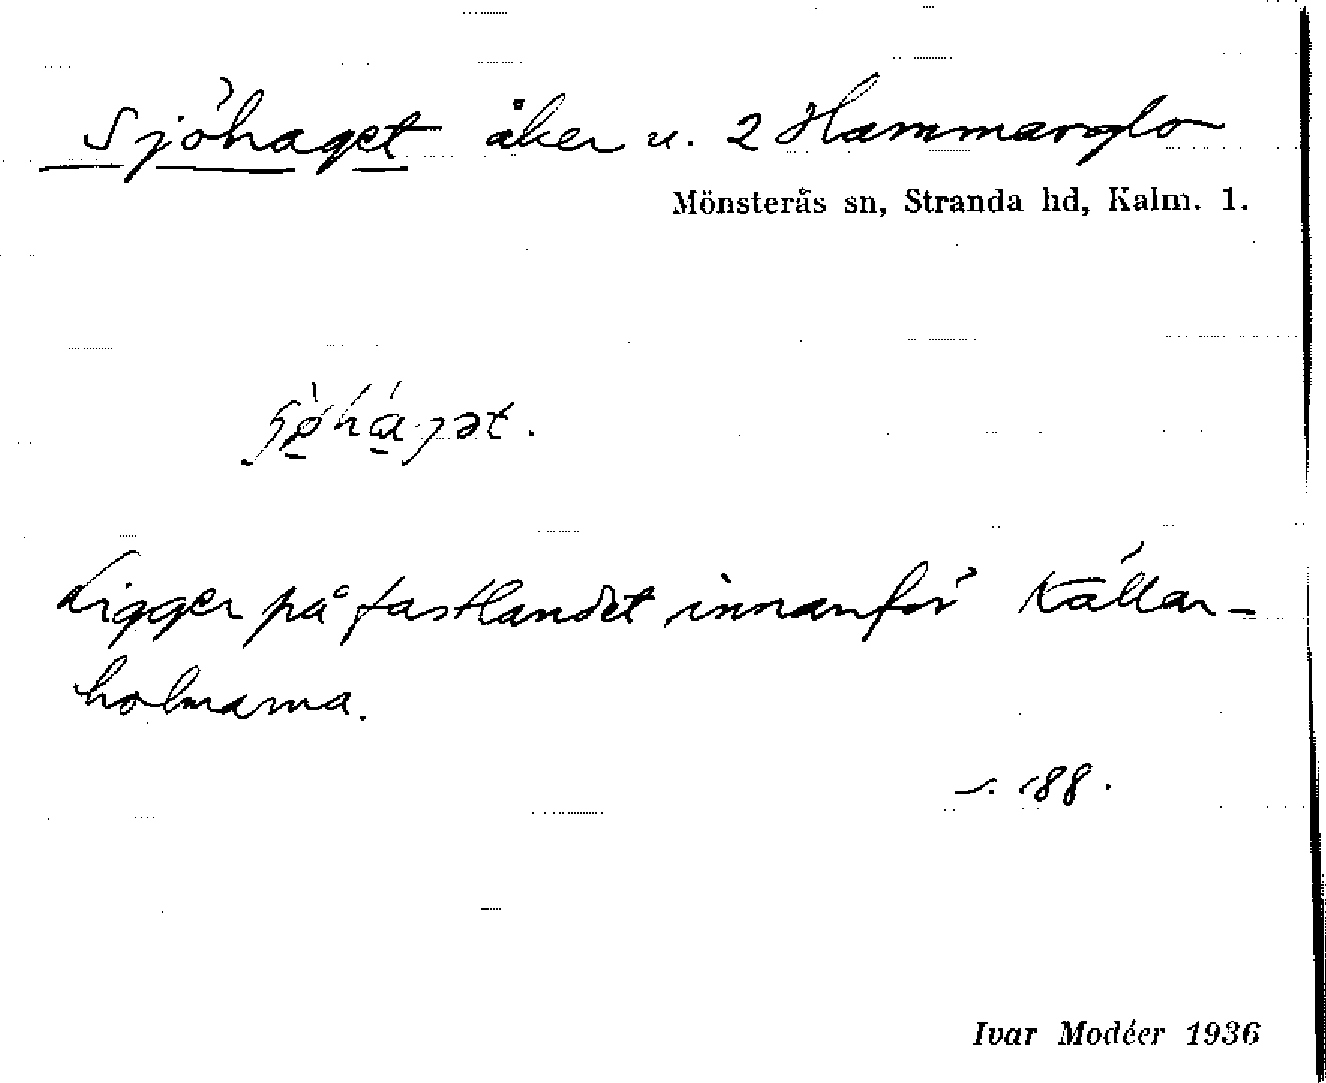 Sjöhaget åker u. 2 Hammarglo
Mönsterås sn, Stranda hd, Kalm. l.
Ligger på fastlandet innanför Källar-
holmarna.
s. 188.
Ivar Modéer 1936